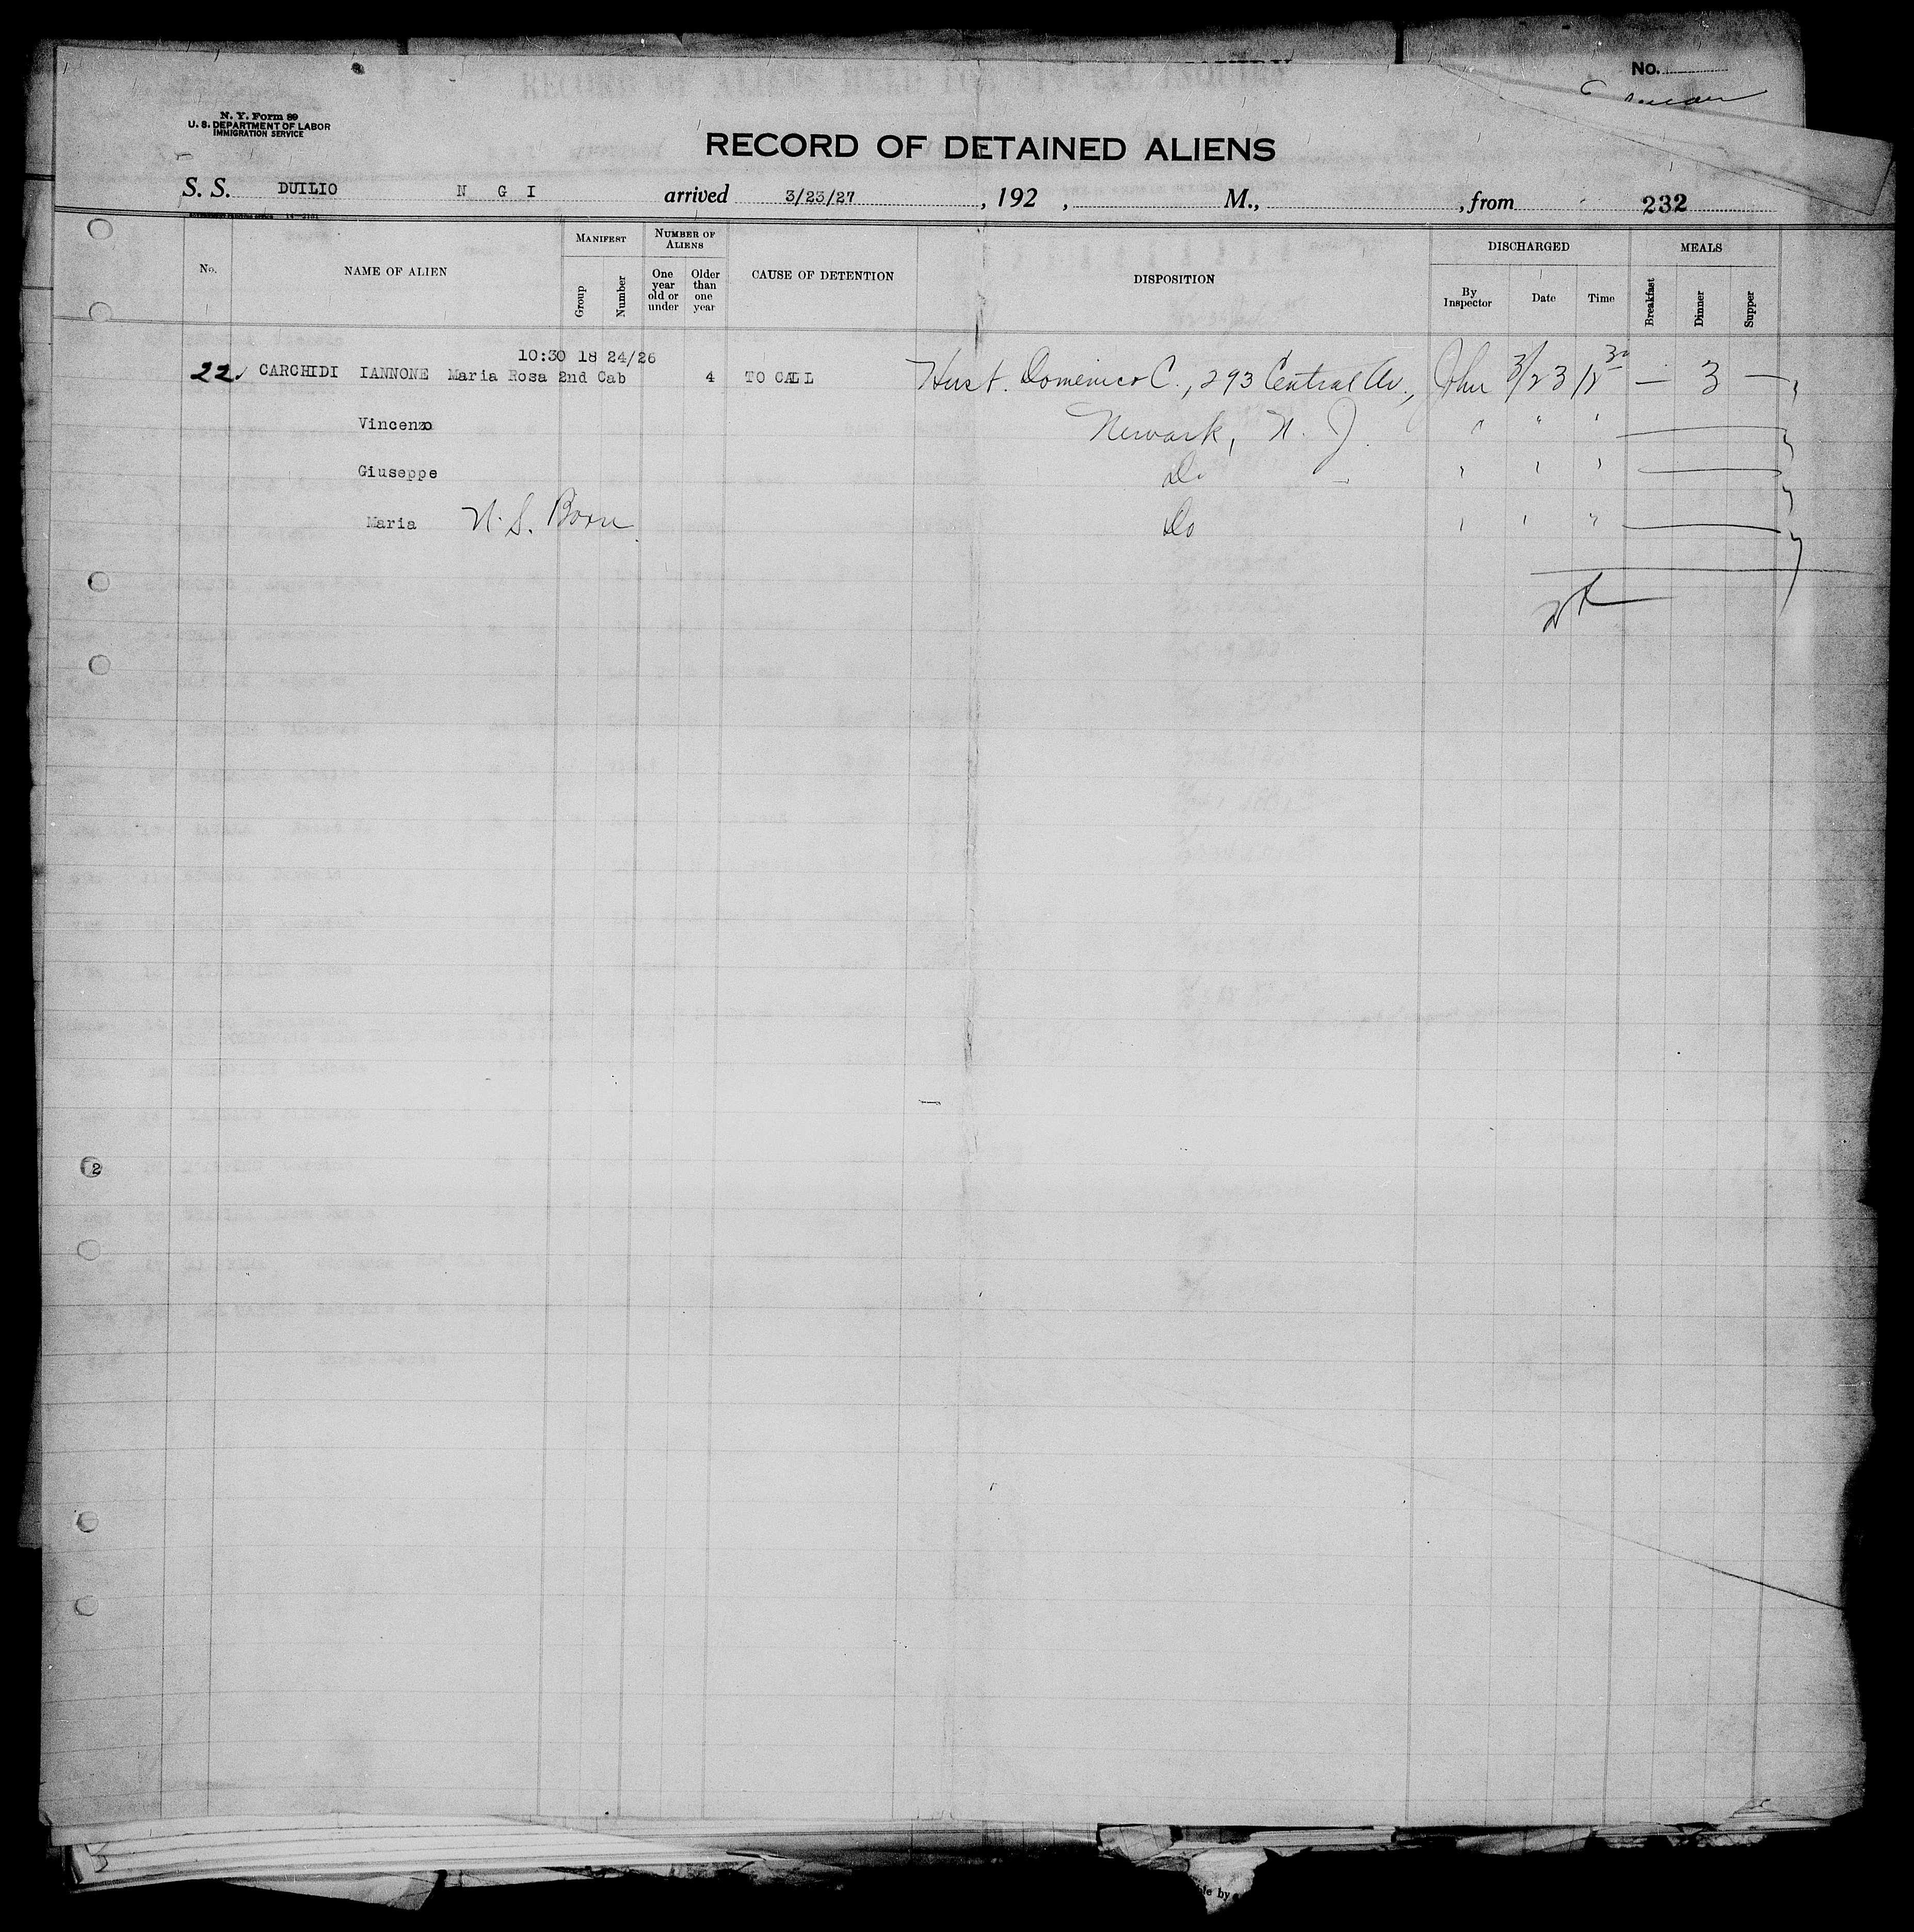 No.
N. Y. Form 89
U. S. DEPARTMENT OF LABOR
IMMIGRATION SERVICE
RECORD OF DETAINED ALIENS
S. S. DUILIO N G I arrived 3/23/27, 192 , M., , from 232
No. NAME OF ALIEN MANIFEST Group Number NUMBER OF ALIENS One year old or under Older than one year CAUSE OF DETENTION DISPOSITION DISCHARGED By Inspector Date Time MEALS Breakfast Dinner Supper
10:30 18 24/26
22 CARCHIDI IANNONE Maria Rosa 2nd Cab 4 TO CALL Hust. Domenico C., 293 Central Av., 3/23 12 30 — 3 —
Vincenzo Newark, N. J. " " "
Giuseppe Do " " "
Maria U. S. Born Do " " "
2
3